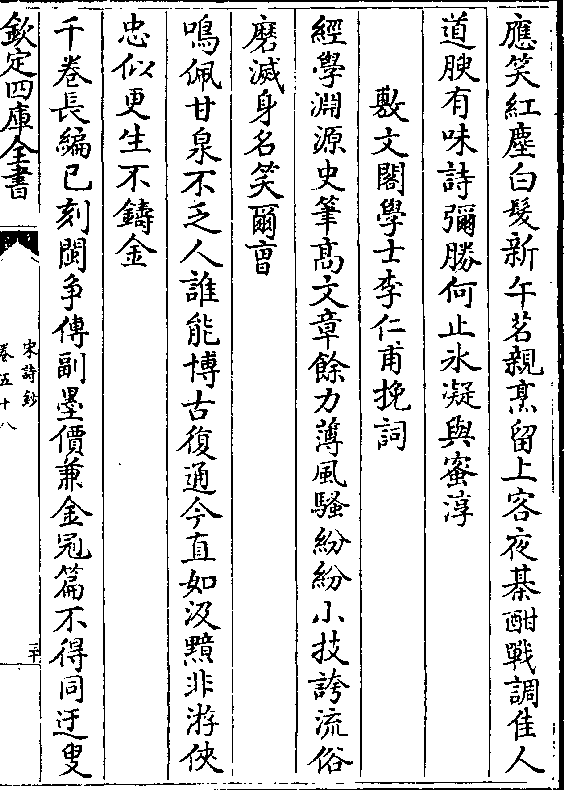 應笑紅塵白髮新午茗親烹留上客夜棊酣戰調佳人
道腴有味詩彌勝何止氷凝與蜜淳
敷文閣學士李仁甫挽詞
經學淵源史筆髙文章餘力薄風騷紛紛小技誇流俗
磨滅身名笑爾曹
鳴佩甘泉不乏人誰能博古復通今直如汲黯非游俠
忠似更生不鑄金
千卷長編已刻閩争傳副墨價兼金冠篇不得同迂叟
欽定四庫全書
宋詩鈔
卷五十八
二十